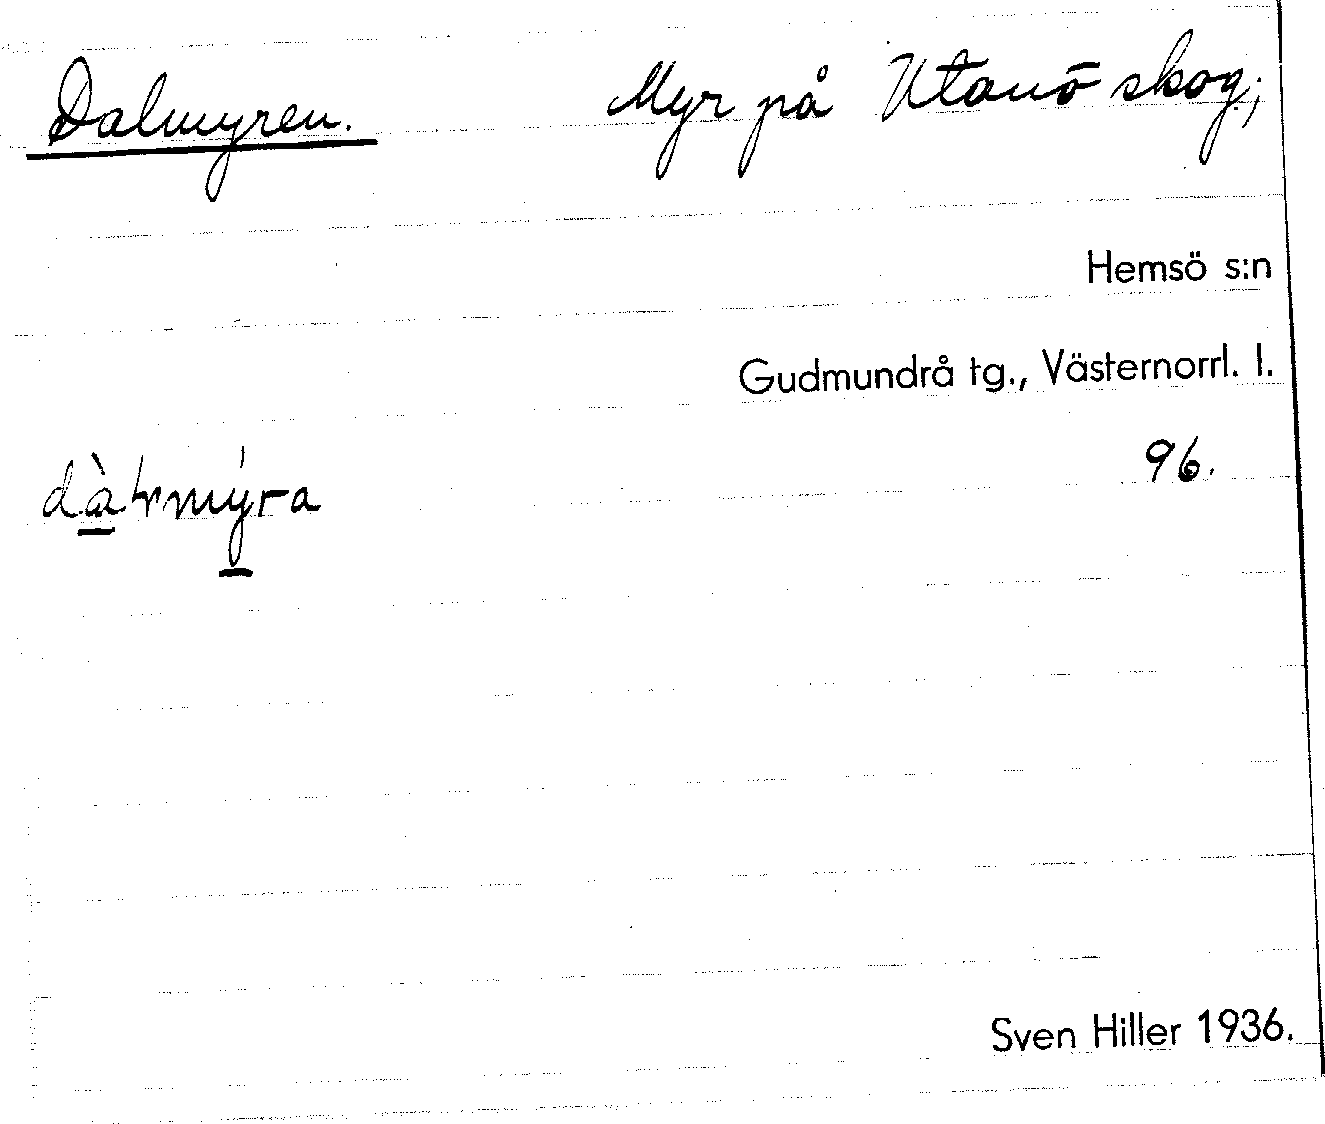 Dalmyren. Myr på Utanö skog;
Hemsö s:n
Gudmundrå tg., Västernorrl. l.
96.
Sven Hiller 1936.